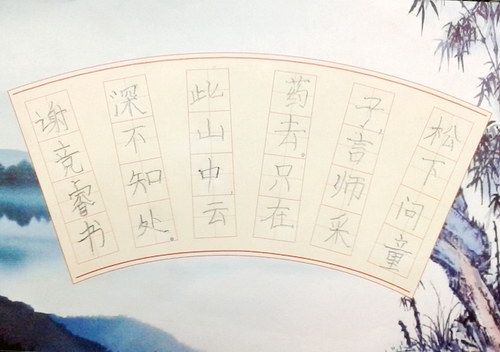 松下问童
子，言师采
药去。只在
此山中，云
深不知处。
谢竞睿书